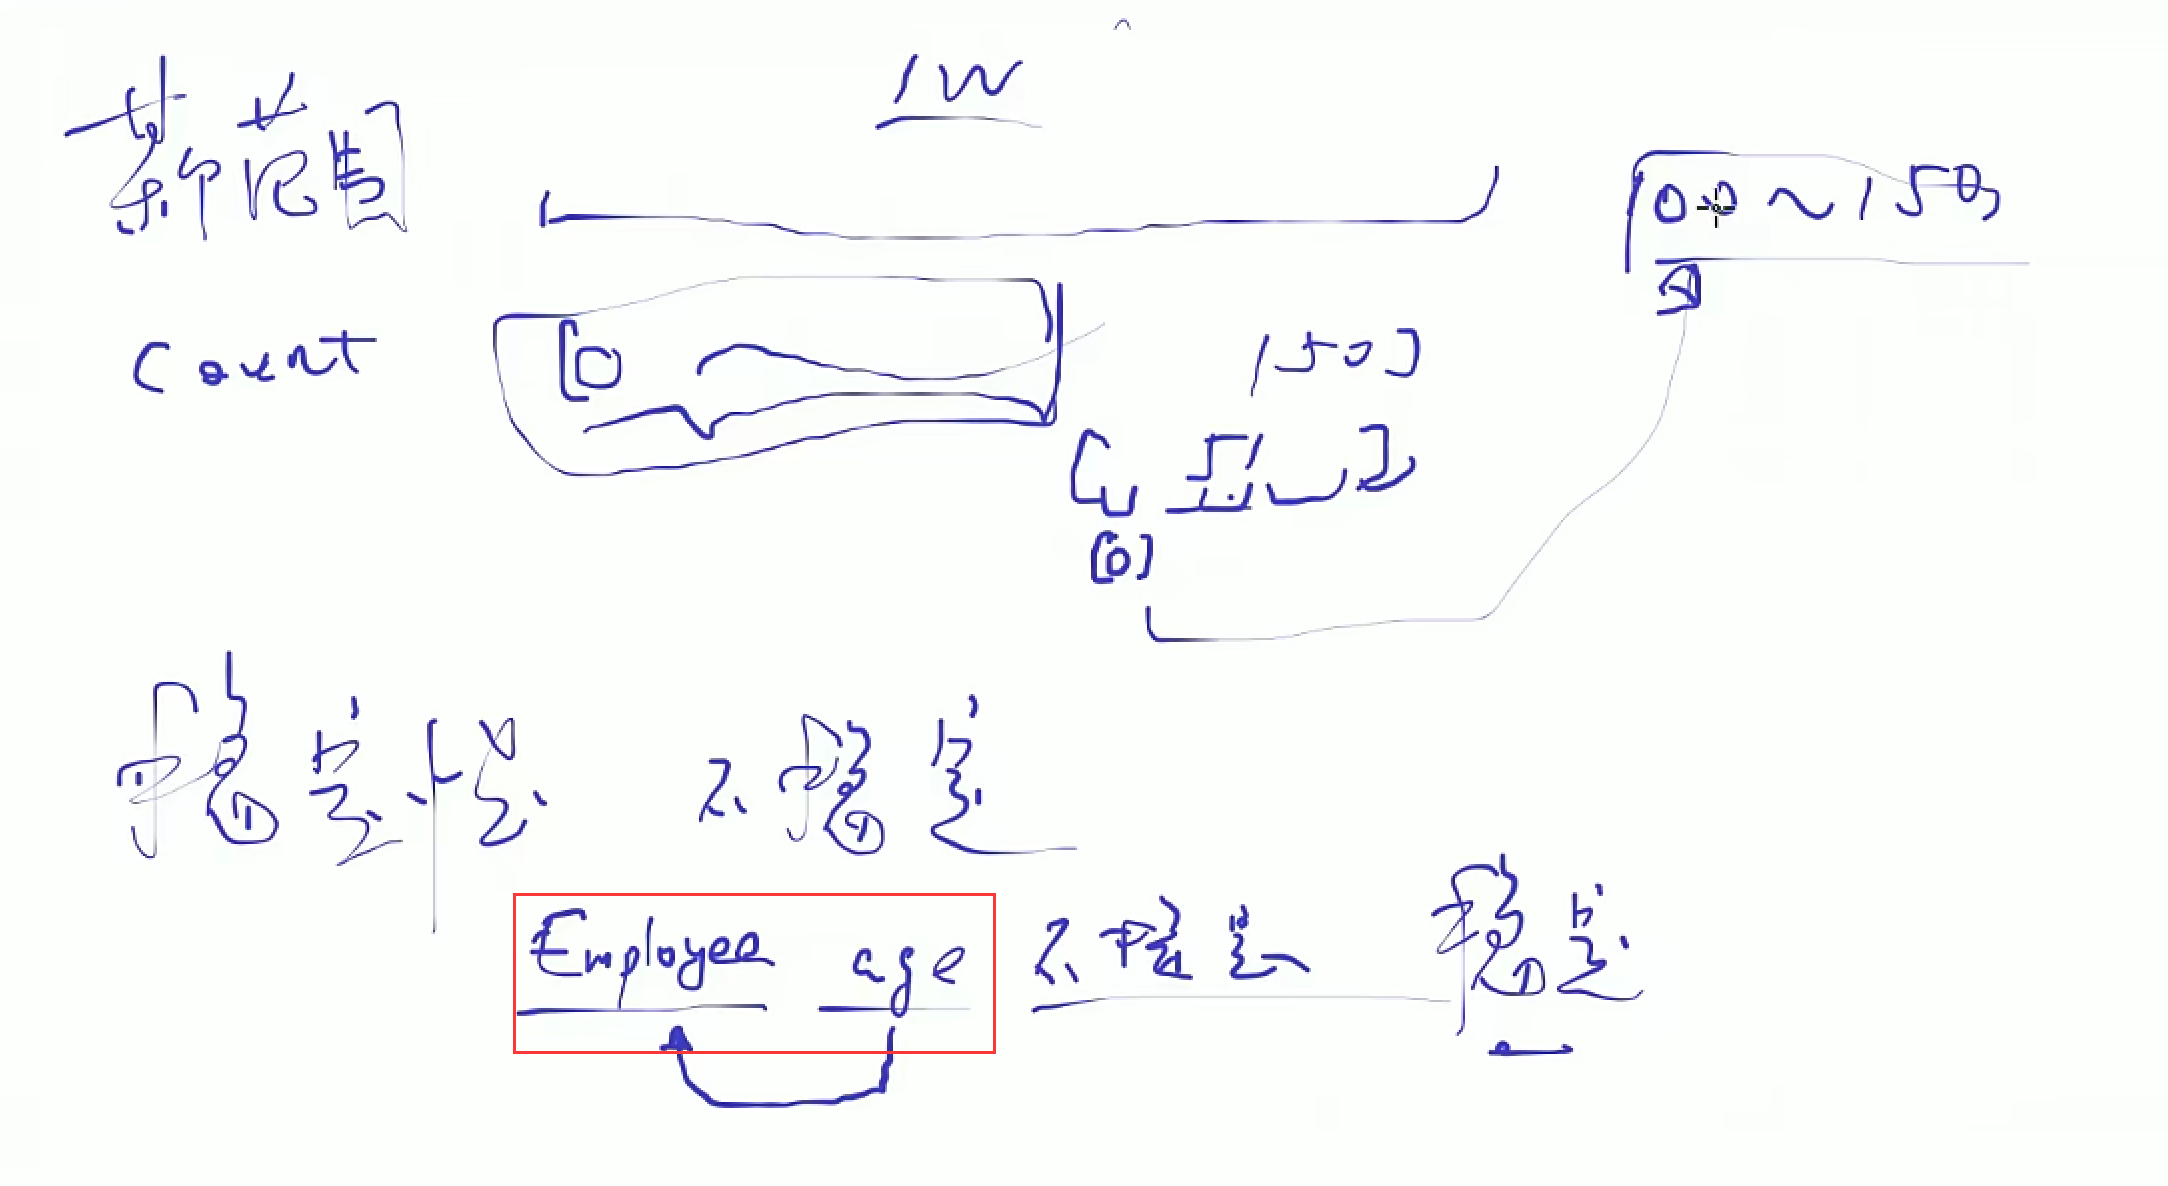 某范围
1W
100~150
Count
[0
150]
[0]
稳定性 不稳定
Employee age 不稳定 稳定